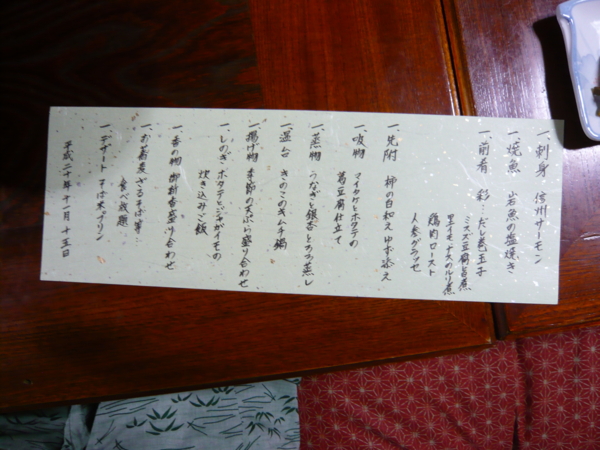 一、刺身 信州サーモン
一、焼魚 岩魚の塩焼き
一、前肴 彩… だし巻玉子
ミスズ豆腐旨煮
里イモナスのルリ煮
鶏肉ロースト
人参グラッセ
一、先附 柿の白和え ゆず添え
一、吸物 マイタケとホタテの
葛豆腐仕立て
一、蒸物 うなぎと銀杏とのお蒸し
一、温台 きのこのキムチ鍋
一、揚げ物 季節の天ぷら盛り合わせ
一、しのぎ ホタテとジャガイモの
炊き込みご飯
一、香の物 御新香盛り合わせ
一、お蕎麦 ざるそば等…
食べ放題
一、デザート そば米プリン
平成二十年十一月十五日